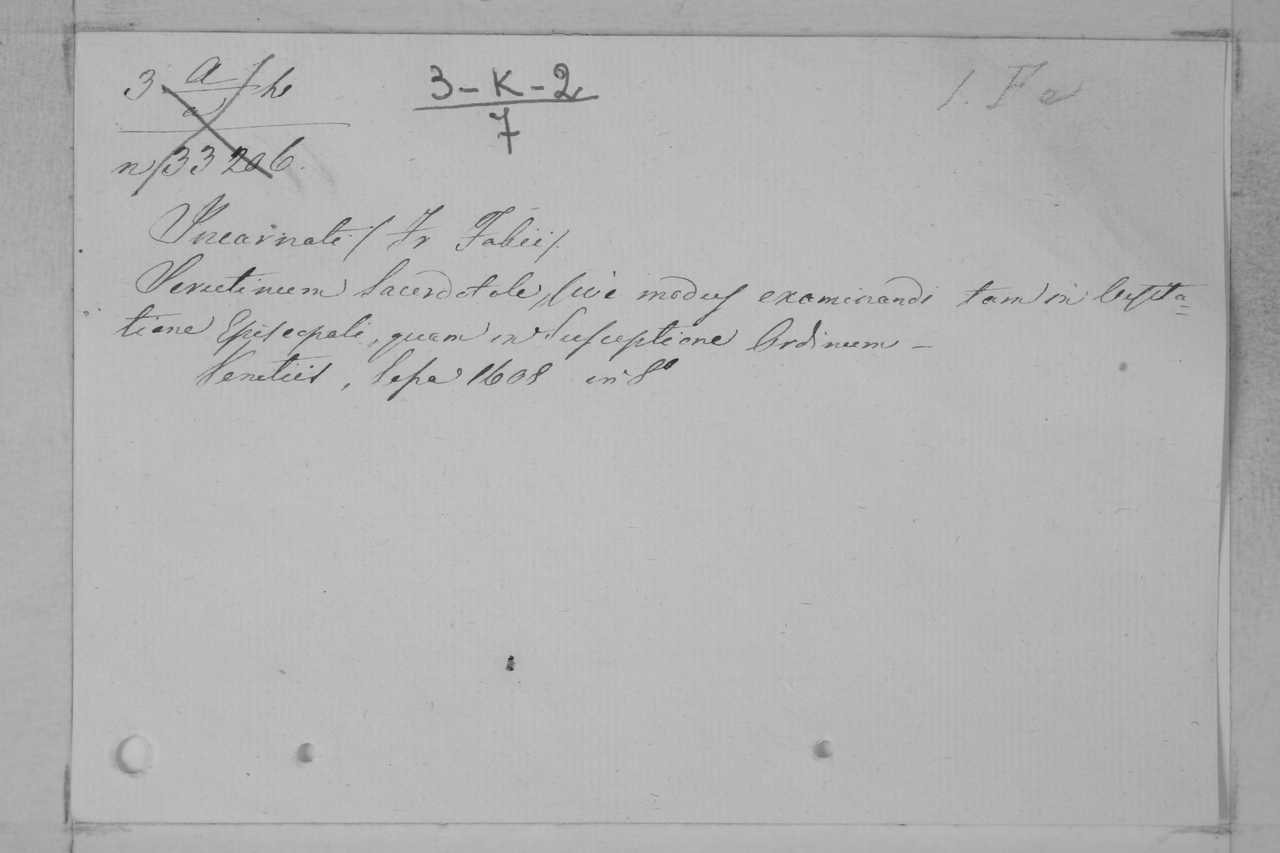 3 a h
3-K-2
7
1. Fa
n 33206.
Incarnati / Fr Fabii /
Scrutinium Sacerdotale, sive modus examinandi tam in Visita=
tione Episcopali, quam in Susceptione Ordinum -
Venetiis, Sessa 1608 in 8º